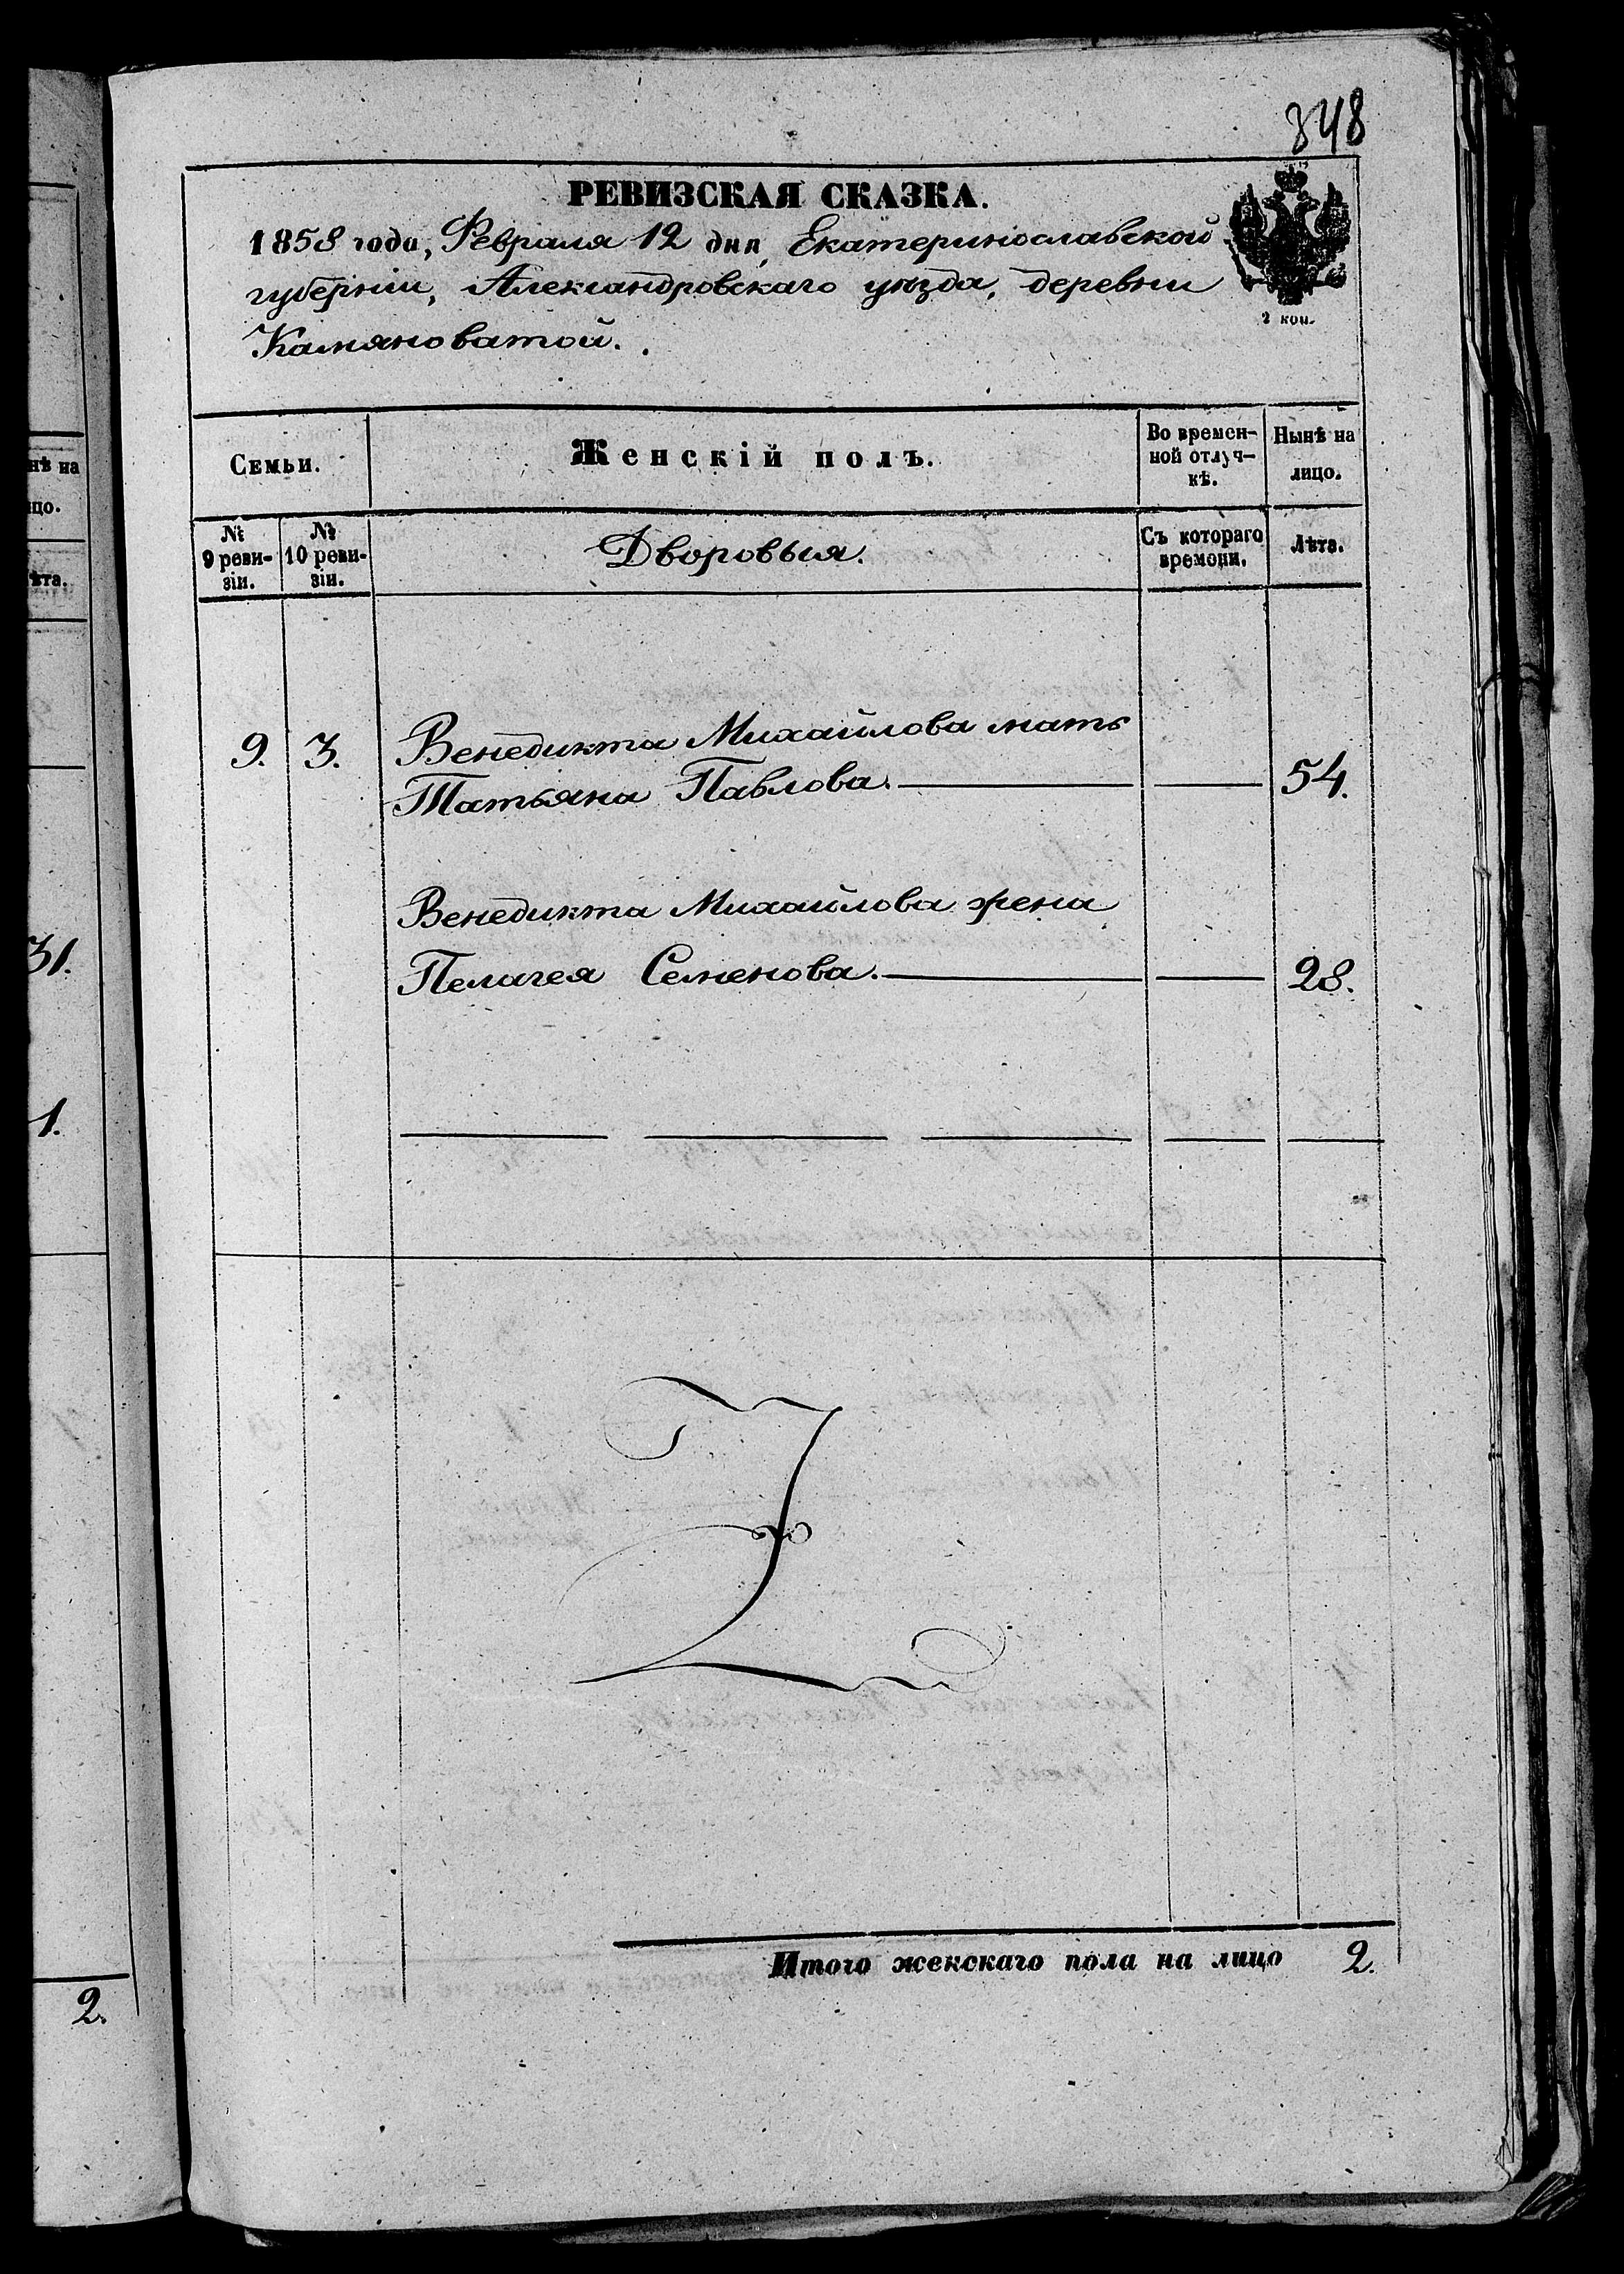 348
РЕВИЗСКАЯ СКАЗКА.
1858 года, Февраля 12 дня, Екатеринославской
губерніи, Александровскаго уѣзда, деревни
Камяноватой.
2 коп.
Семьи.
Женскій полъ.
Во времен-
ной отлуч-
кѣ.
Нынѣ на
лицо.
№
9 реви-
зіи.
№
10 реви-
зіи.
Дворовыя.
Съ котораго
времени.
Лѣта.
9. 3. Венедикта Михайлова мать
Татьяна Павлова. 54.
Венедикта Михайлова жена
Пелагея Семенова. 28.
Итого женскаго пола на лицо 2.
нѣ на
цо.
ѣта.
31.
1.
2.